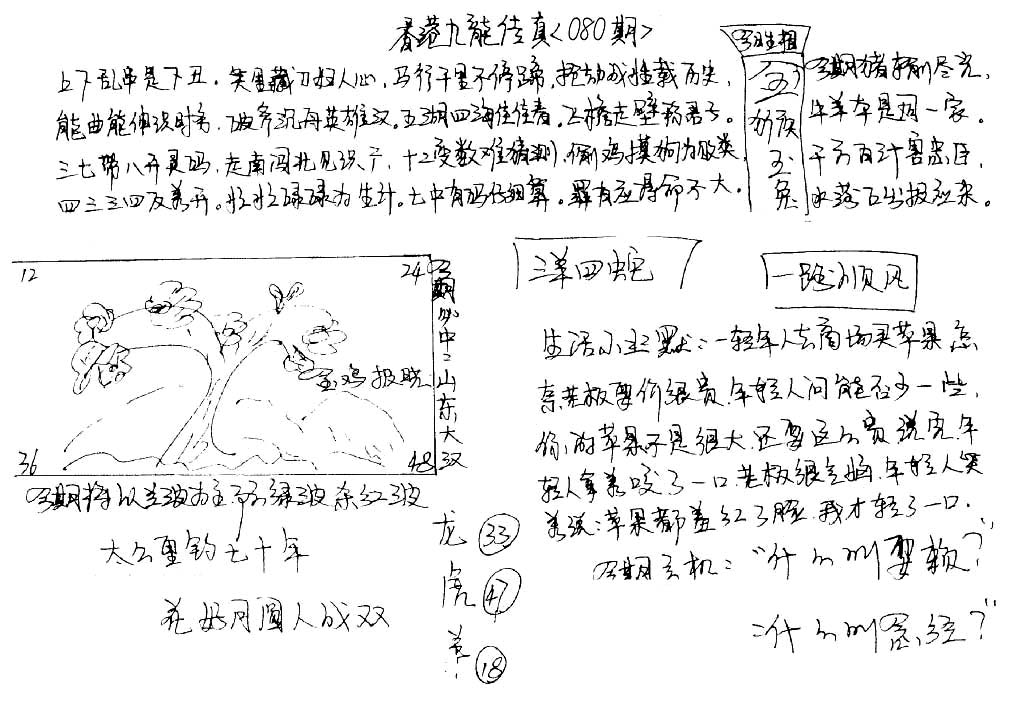 香港九龙传真<080期>
上下乱串是下丑。笑里藏刀妇人心,马行千里不停蹄,挖动成性载历史,
能曲能伸识时务,破斧沉舟英雄汉。五湖四海住佳春。飞檐走壁称君子。
三七带八开灵码,走南闯北见识广,十二变数难猜测,偷鸡摸狗为败类,
四三三四反着开。忙忙碌碌为生计。七中有码仔细算。罪有应得命不大。
今期生相
玉
兔
今期猪
牛羊本是同一家。
千方百计害忠臣,
水落石出报应来。
12
24
36
48
玉鸡报晓
今期必中:山东大汉
今期将以蓝波为主 绿波 杂红波
太公垂钓七十年
花好月圆人成双
龙 33
虎 47
羊 18
三羊四蛇
一路顺风
生活小幽默:一轻年人去商场买苹果,怎
奈老板要价很贵,年轻人问能否少一些,
你的苹果不是很大,还要这么贵,说完,年
轻人拿着咬了一口,老板很气愤,年轻人笑
着说:苹果都羞红了脸,我才轻了一口.
今期玄机:“什么叫耍赖?”
:什么叫 经?”